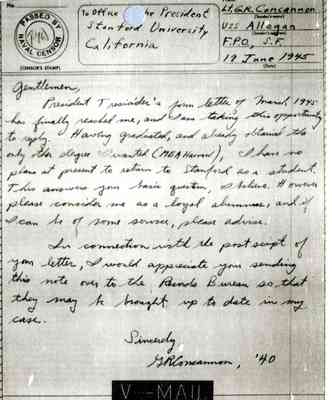 No.
PASSED BY
NAVAL CENSOR
(CENSOR'S STAMP)
To Office the President
Stanford University
California
From
Lt. G.R. Concannon
USS Allagan
F.P.O., S.F.
19 June 1945
(Date)
Gentlemen,
President Tresidder's form letter of March 1945
has finally reached me, and I am taking this opportunity
to reply. Having graduated, and already obtained the
only other degree I wanted (MBA Harvard), I have no
plans at present to return to Stanford as a student.
This answers your basic question, I believe. However
please consider me as a loyal alumnus, and if
I can be of some service, please advise.
In connection with the post script of
your letter, I would appreciate you sending
this note over to the Records Bureau so that
they may be brought up to date in my
case.
Sincerely
GRConcannon, '40
V···—MAIL